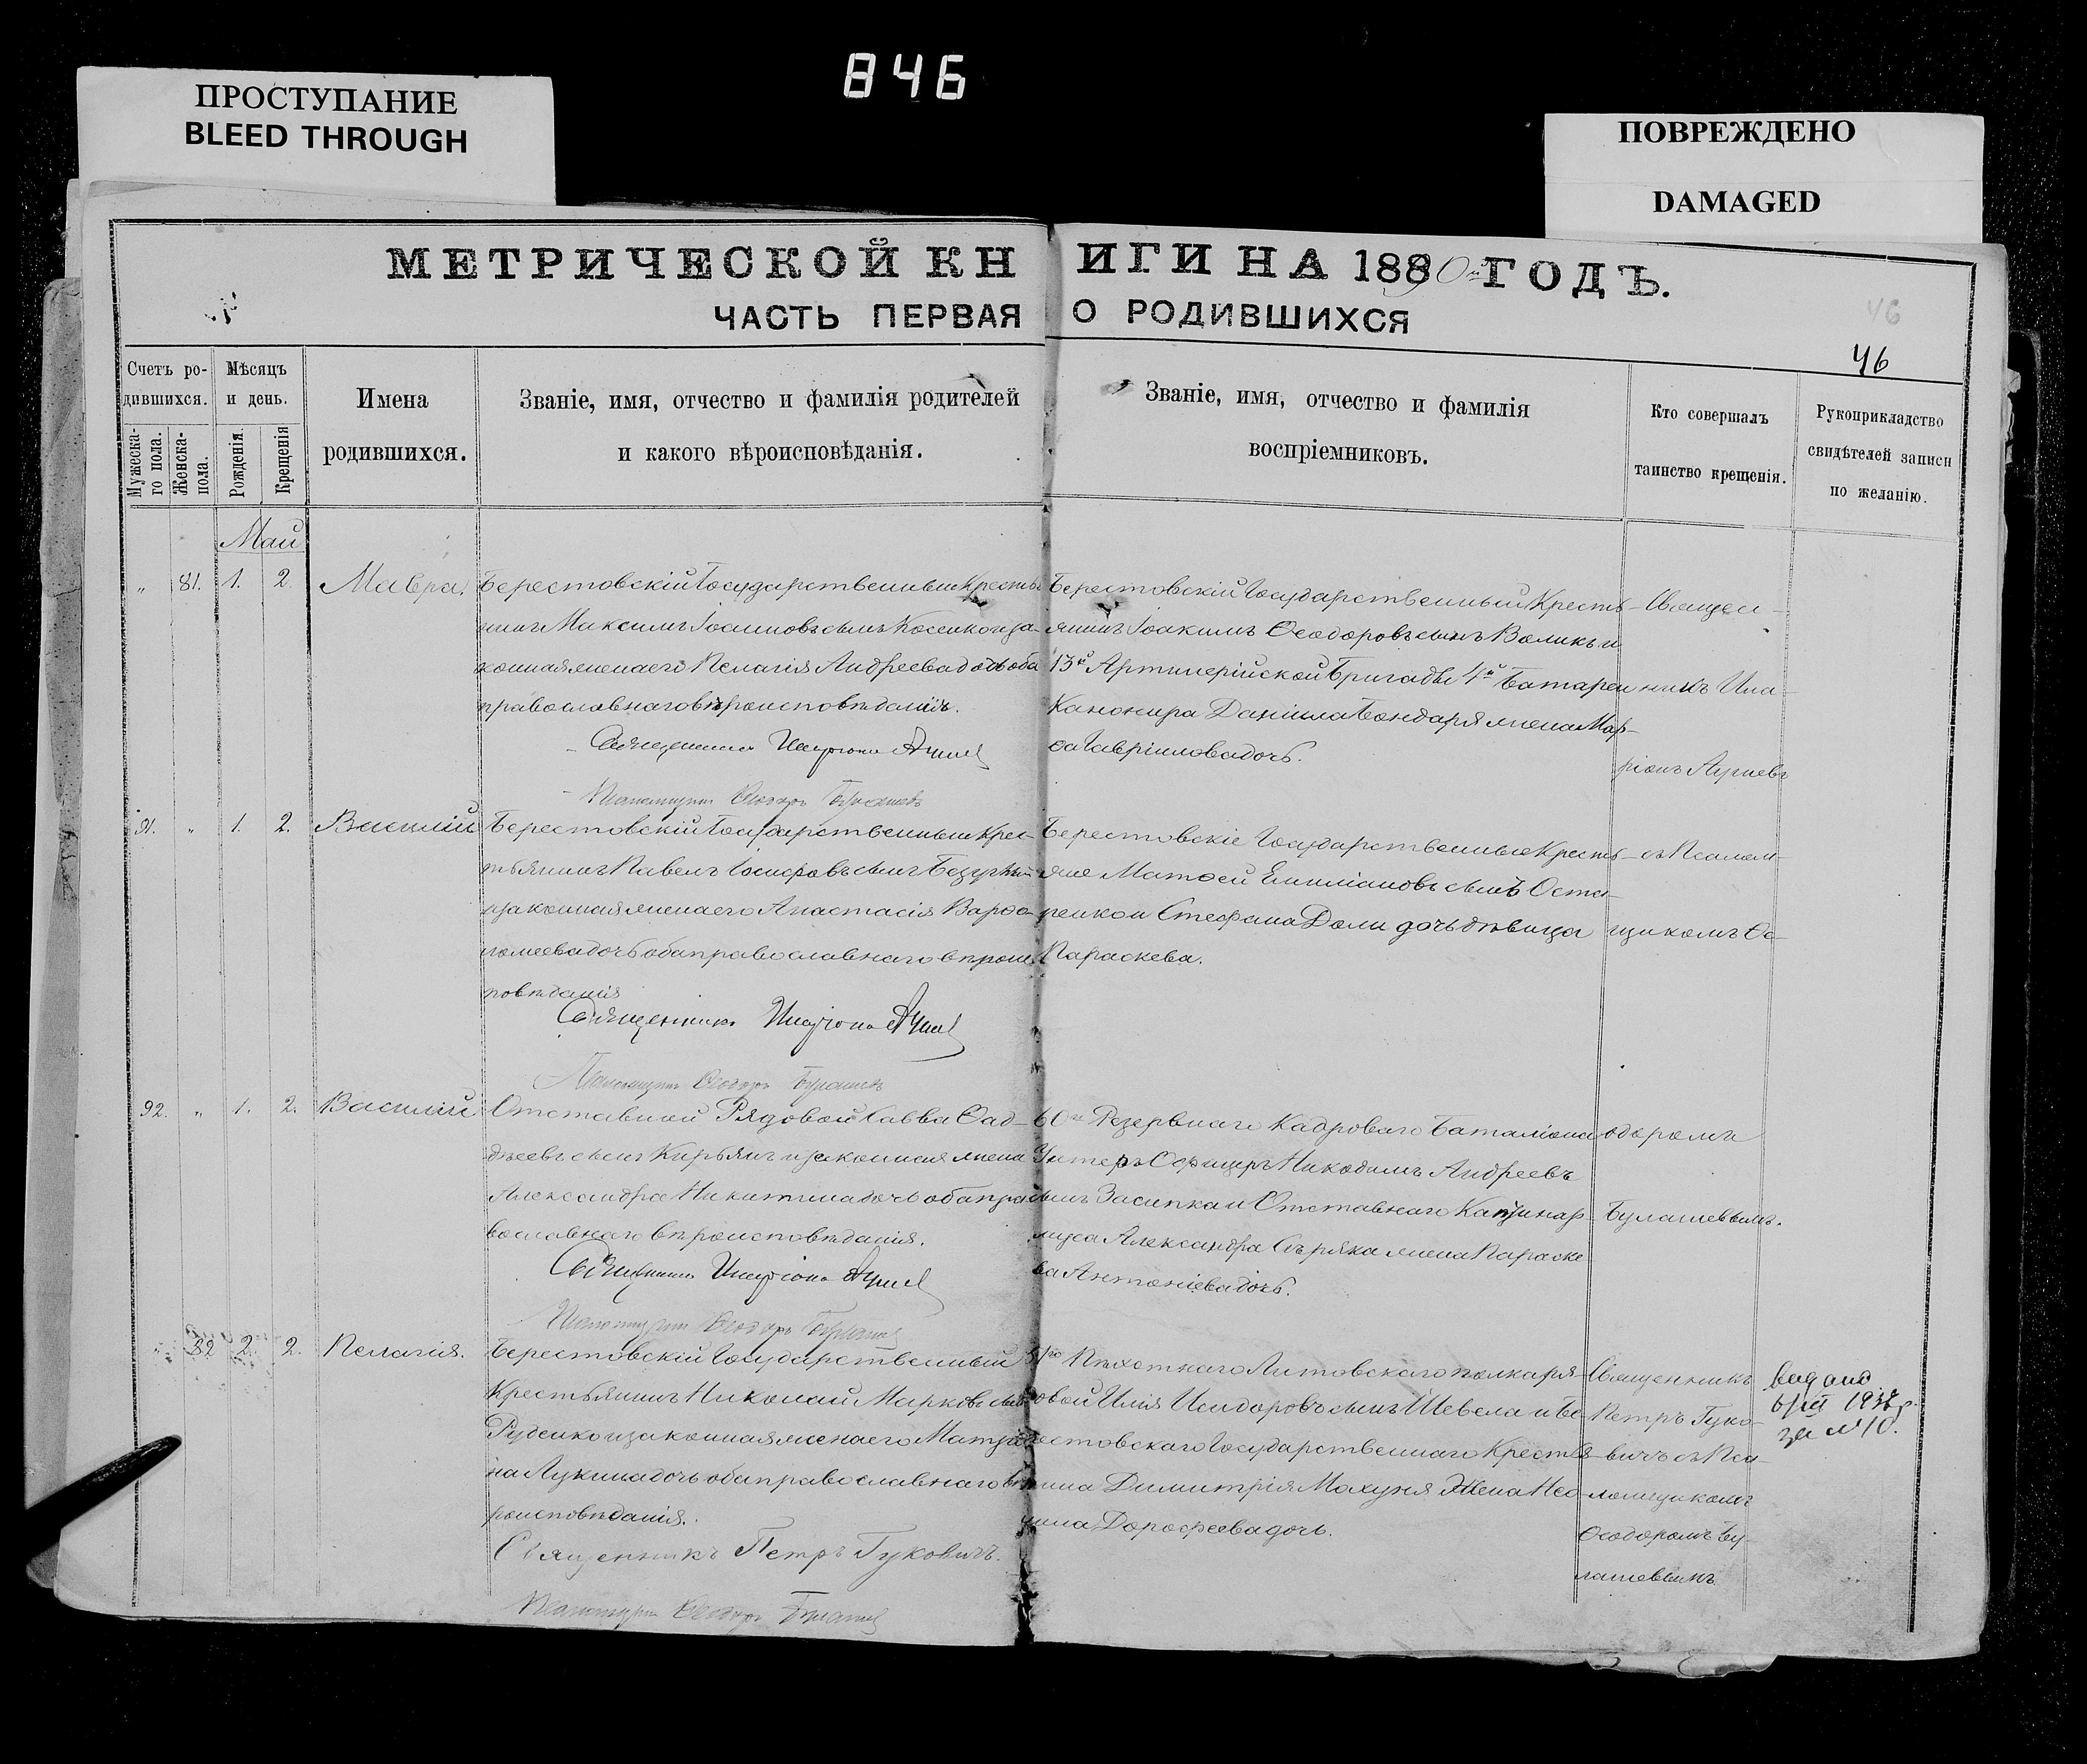 846
ПРОСТУПАНИЕ
BLEED THROUGH
ПОВРЕЖДЕНО
DAMAGED
МЕТРИЧЕСКОЙ КНИГИ НА 1890 ГОДЪ.
ЧАСТЬ ПЕРВАЯ О РОДИВШИХСЯ
46
46
Счетъ ро-
дившихся.
Мужеска-
го пола.
Женска-
пола.
Мѣсяцъ
и день.
Рожденія.
Крещенія
Имена
родившихся.
Званіе, имя, отчество и фамилія родителей
и какого вѣроисповѣданія.
Званіе, имя, отчество и фамилія
воспріемниковъ.
Кто совершалъ
таинство крещенія.
Рукоприкладство
свидѣтелей записи
по желанію.
Май
" 81. 1. 2. Мавра.
Берестовскій Государственный Кресть
нинъ Максимъ Іоанновъ сынъ и за-
конная жена его Пелагія Андреева дочь оба
православнаго вѣроисповѣданія.
Священникъ Иларіонъ
Псаломщикъ Ѳеодоръ Булашевъ
Берестовскій Государственный Кресть-
янинъ Іоакимъ Ѳеодоровъ сынъ Воликъ и
13й Артилерійской Бригады 4й Батареи
Канонира Даніила Бондаря жена Мар-
ѳа Гавріилова дочь.
Священ-
никъ Ила-
ріонъ
91. " 1. 2. Василій
Берестовскій Государственный Крес-
тьянинъ Павелъ Іосифовъ сынъ
и законная жена его Анастасія Варѳо-
ломеева дочь оба православнаго вѣроис
повѣданія
Священникъ Иларіонъ
Псаломщикъ Ѳеодоръ Булашевъ
Берестовскіе Государственные Кресть-
яне Матѳей Емиліановъ сынъ Оста-
пенко и Стефана Доли дочь дѣвица
Параскева.
съ Псалом-
щикомъ Ѳе-
92. " 1. 2. Василій
Отставной Рядовой Савва Ѳад-
дѣевъ сынъ Кирьянъ и законная жена
Александра Никитина дочь оба пра
вославнаго вѣроисповѣданія.
Священникъ Иларіонъ
Псаломщикъ Ѳеодоръ Булашевъ
60го Резервнаго Кадроваго Баталіона
Унтеръ Офицеръ Никодимъ Андреевъ
сынъ Засипка и Отставнаго Каптенар-
муса Александра жена Параске
ва Антоніева дочь.
одоромъ
Булашевымъ.
" 82 2. 2. Пелагія.
Берестовскій Государственный
Крестьянинъ Николай Марковъ сынъ
Руденко и законная жена его Матро
на Лукина дочь оба православнаго вѣ
роисповѣданія.
Священникъ Петръ Гуковичъ.
Псаломщикъ Ѳеодоръ Булашевъ
Пѣхотнаго Литовскаго полка ря-
довой Илія Исидоровъ сынъ Шевела и Бе-
рестовскаго Государственнаго Крестья
нина Димитрія Махуня Жена Нео-
нила Дороѳеева дочь.
Священникъ
Петръ Гуко-
вичъ съ Пса-
ломщикомъ
Ѳеодоромъ Бу-
лашевымъ.
за №10.